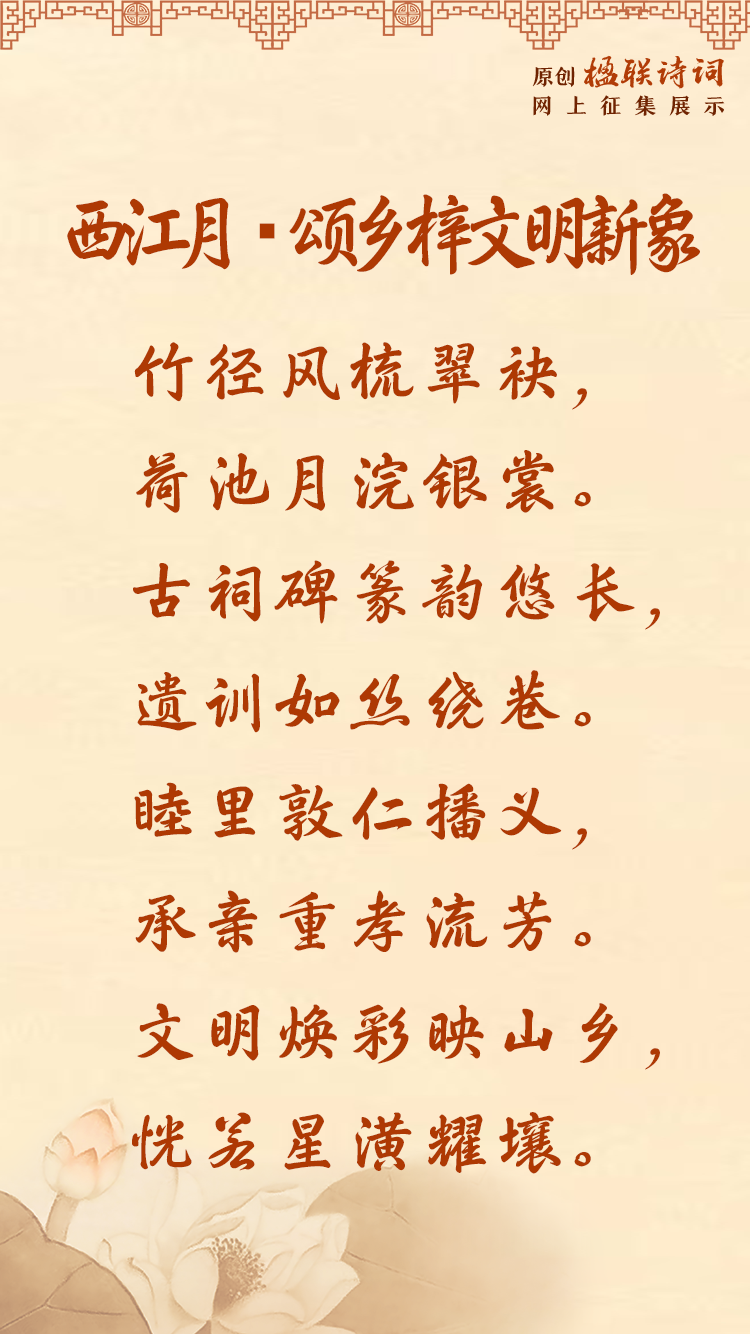 原创 楹联诗词
网上征集展示
西江月·颂乡梓文明新象
竹径风梳翠袂，
荷池月浣银裳。
古祠碑篆韵悠长，
遗训如丝绕巷。
睦里敦仁播义，
承亲重孝流芳。
文明焕彩映山乡，
恍若星潢耀壤。